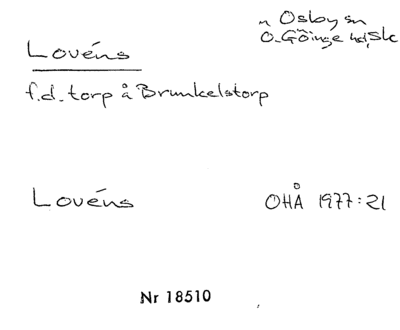 n Osby sn
Ö. Göinge hd, Sk
Lovéns
f.d. torp å Brunkelstorp
Lovéns
OHÅ 1977:21
Nr 18510